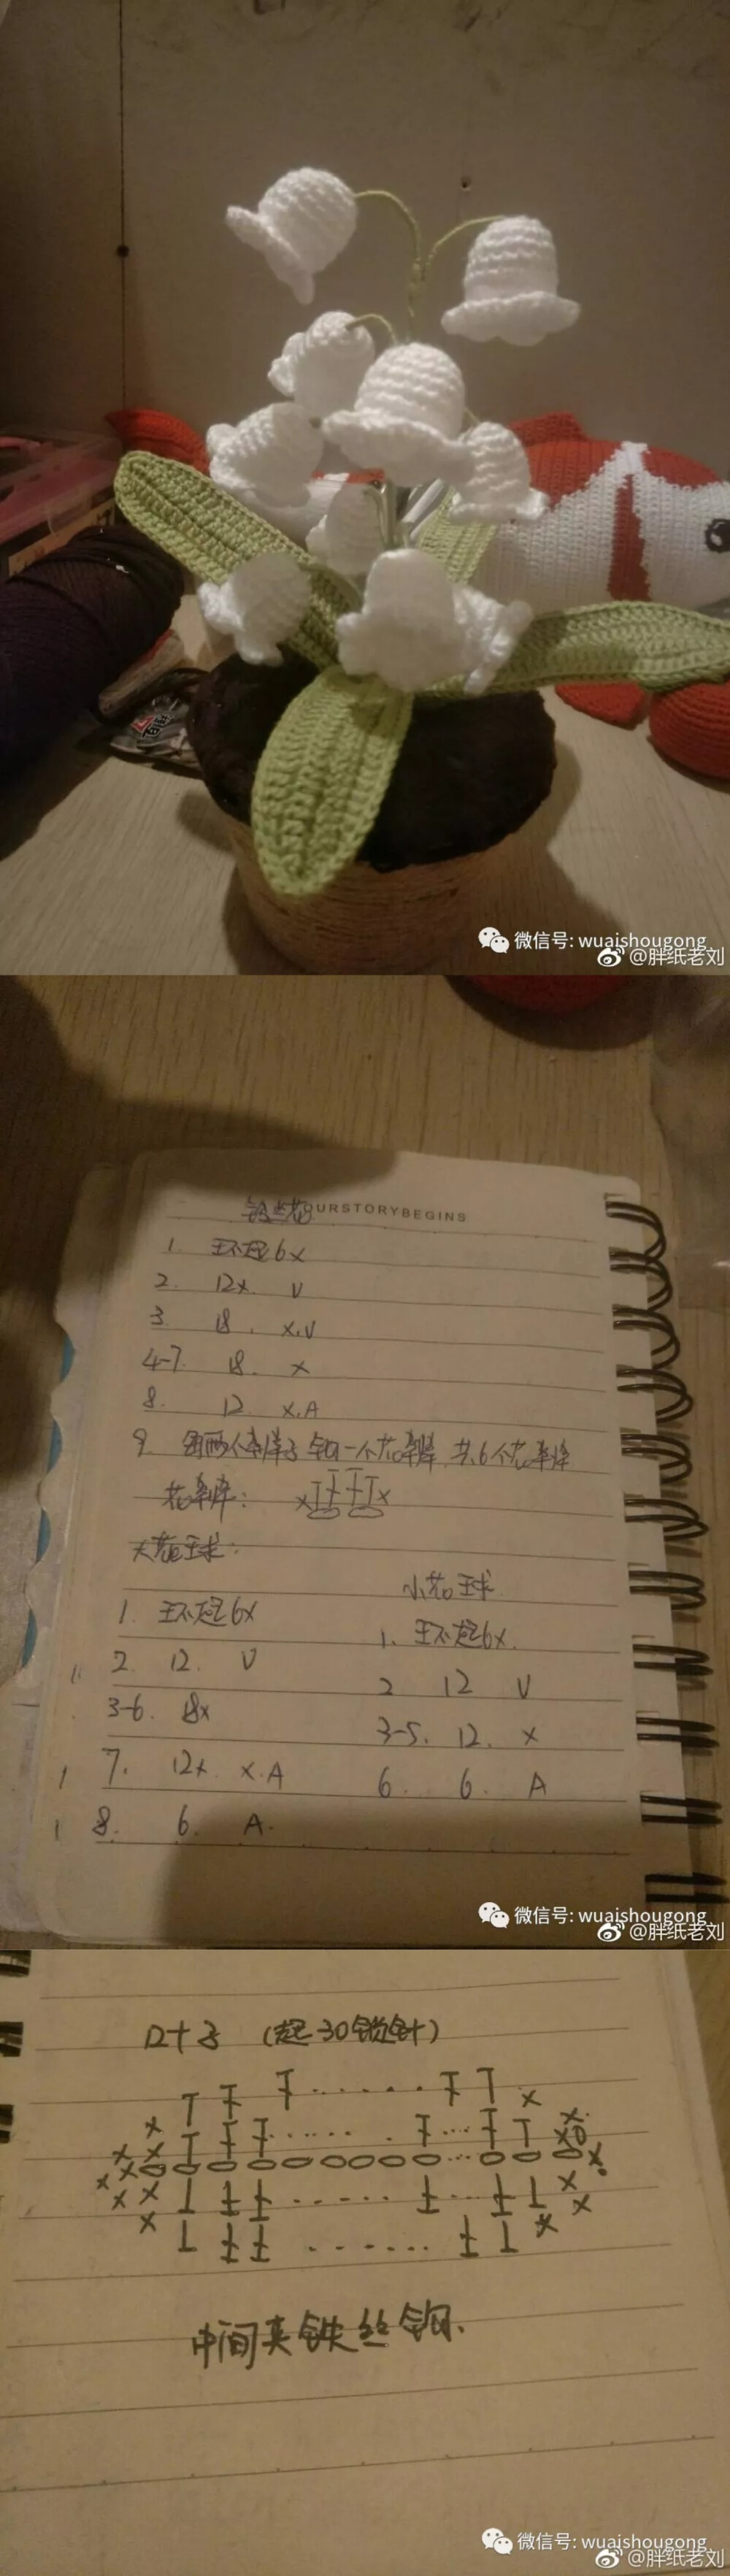 微信号: wuaishougong
@胖纸老刘
铃兰花 OURSTORYBEGINS
1. 环起6x
2. 12x. V
3. 18. x.V
4-7. 18. x
8. 12. x.A
9. 每两个针 钩一个花瓣 共6个花瓣
花瓣:
大花球:
1. 环起6x
2. 12. V
3-6. 18x
7. 12x. x.A
8. 6. A.
小花球.
1. 环起6x.
2 12 V
3-5. 12. x
6. 6. A
微信号: wuaishougong
@胖纸老刘
叶子 (起30锁针)
中间夹铁丝钩.
微信号: wuaishougong
@胖纸老刘